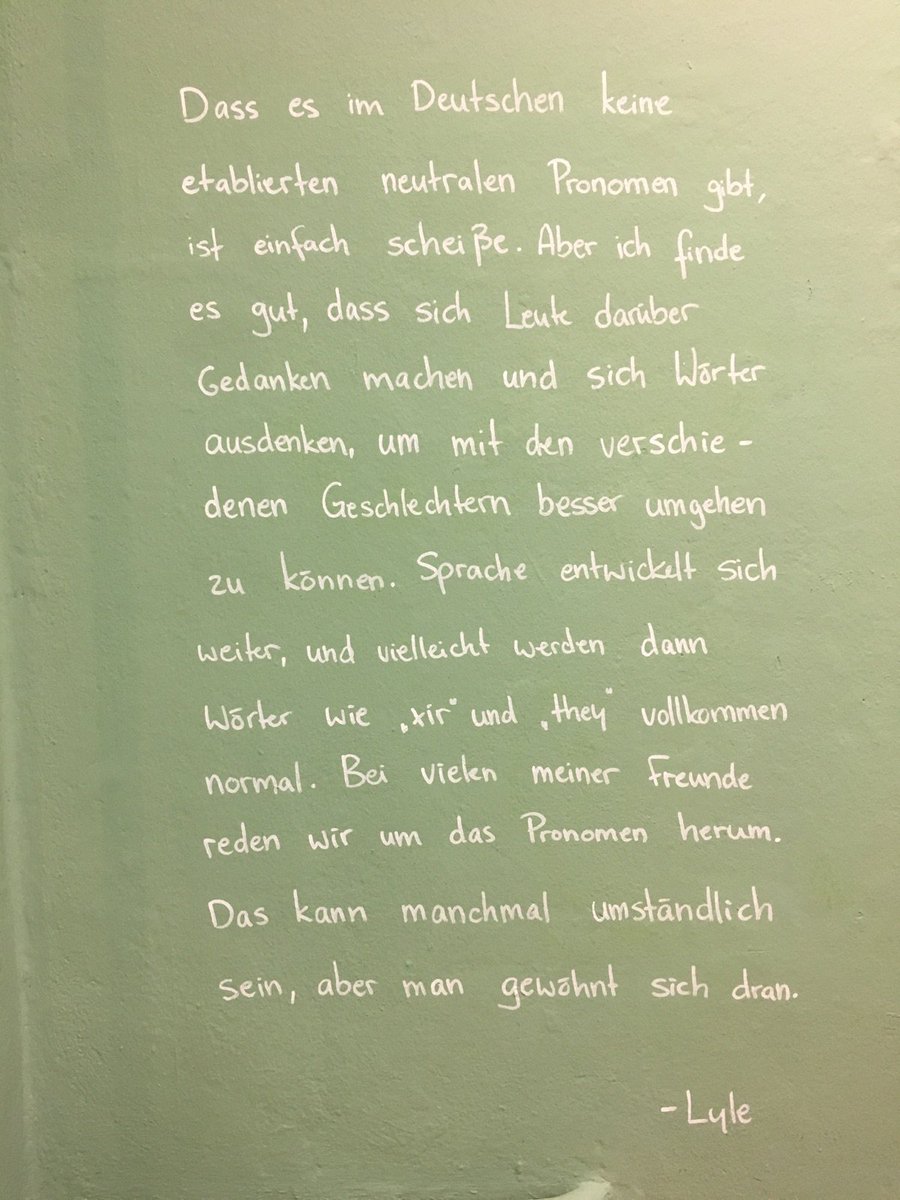 Dass es im Deutschen keine
etablierten neutralen Pronomen gibt,
ist einfach scheiße. Aber ich finde
es gut, dass sich Leute darüber
Gedanken machen und sich Wörter
ausdenken, um mit den verschie-
denen Geschlechtern besser umgehen
zu können. Sprache entwickelt sich
weiter, und vielleicht werden dann
Wörter wie „xir“ und „they“ vollkommen
normal. Bei vielen meiner Freunde
reden wir um das Pronomen herum.
Das kann manchmal umständlich
sein, aber man gewöhnt sich dran.
-Lyle